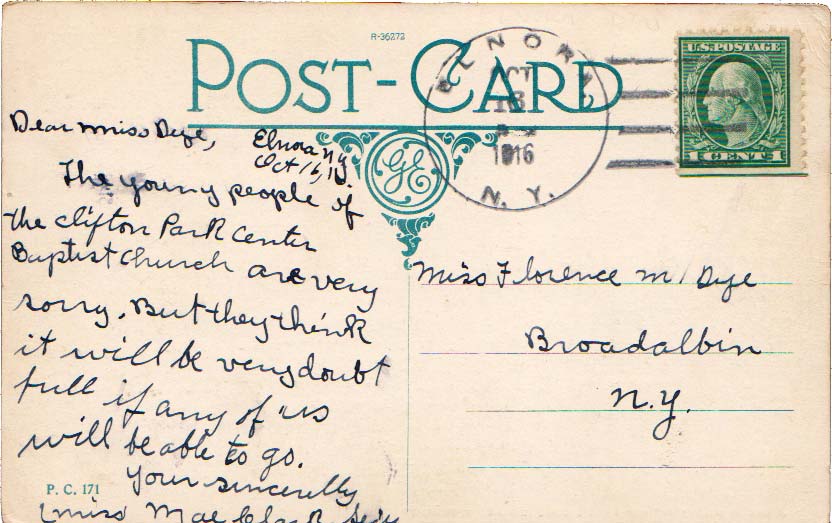 R-36272
POST-CARD
ELNORA
OCT
16
1916
N. Y.
U.S. POSTAGE
1 CENT 1
GE
Dear Miss Dye,
Elnora N.Y.
Oct 16, 16.
The young people of
the Clifton Park Center
Baptist Church are very
sorry. But they think
it will be very doubt
full if any of us
will be able to go.
Your sincerelly
(Miss Mae Clark
P. C. 171
Miss Florence M. Dye
Broadalbin
N.Y.